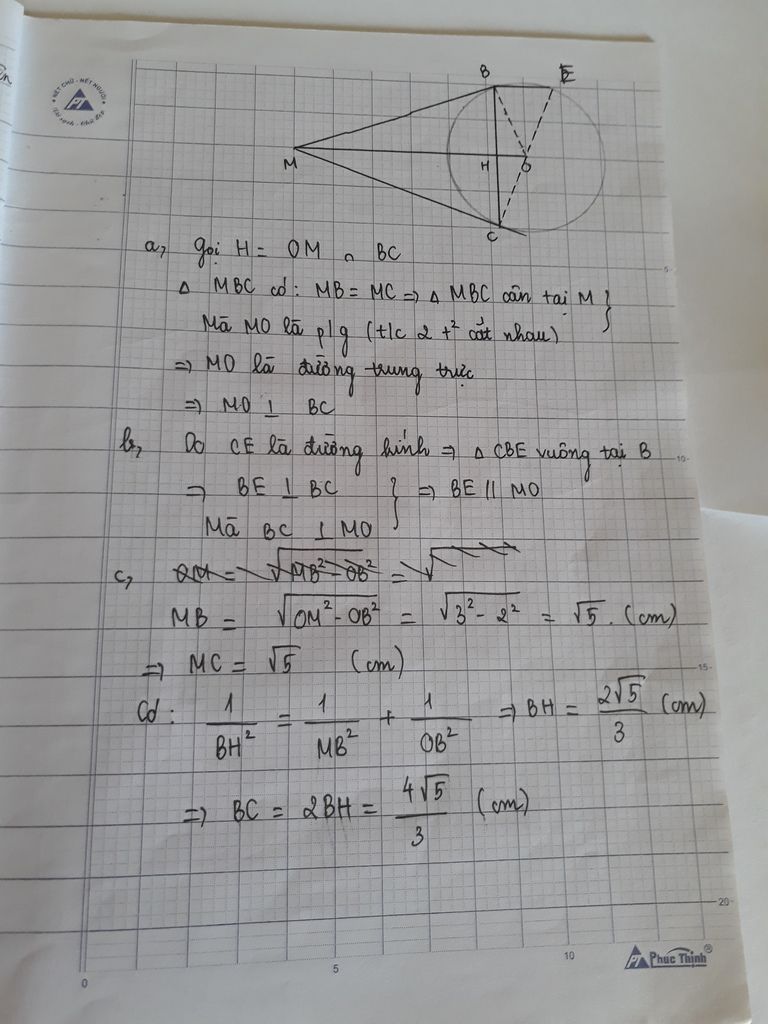 NÉT CHỮ - NẾT NGƯỜI
B E
M H O
C
a, Gọi H = OM ∩ BC
Δ MBC có: MB = MC ⇒ Δ MBC cân tại M }
Mà MO là p/g (t/c 2 t² cắt nhau)
⇒ MO là đường trung trực
⇒ MO ⊥ BC
b, Do CE là đường kính ⇒ Δ CBE vuông tại B
⇒ BE ⊥ BC } ⇒ BE // MO
Mà BC ⊥ MO
c, OM = √(MB² - OB²) = √
MB = √(OM² - OB²) = √(3² - 2²) = √5. (cm)
⇒ MC = √5 (cm)
Có: 1/BH² = 1/MB² + 1/OB² ⇒ BH = 2√5/3 (cm)
⇒ BC = 2BH = 4√5/3 (cm)
5
10
15
20
0 5 10
Phúc Thịnh®